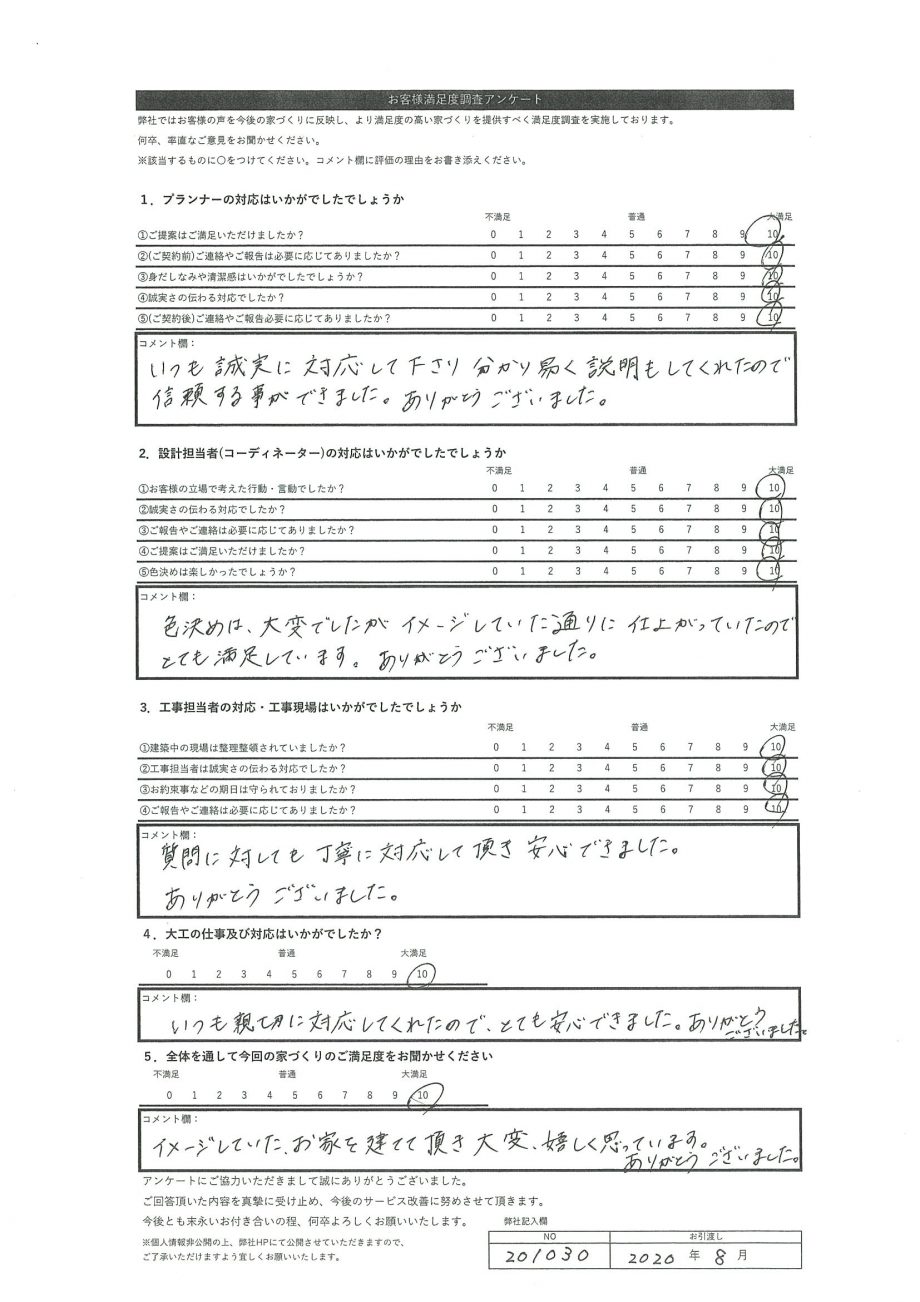 お客様満足度調査アンケート
弊社ではお客様の声を今後の家づくりに反映し、より満足度の高い家づくりを提供すべく満足度調査を実施しております。
何卒、率直なご意見をお聞かせください。
※該当するものに〇をつけてください。コメント欄に評価の理由をお書き添えください。
1．プランナーの対応はいかがでしたでしょうか
不満足 普通 大満足
①ご提案はご満足いただけましたか？ 0 1 2 3 4 5 6 7 8 9 10
②(ご契約前)ご連絡やご報告は必要に応じてありましたか？ 0 1 2 3 4 5 6 7 8 9 10
③身だしなみや清潔感はいかがでしたでしょうか？ 0 1 2 3 4 5 6 7 8 9 10
④誠実さの伝わる対応でしたか？ 0 1 2 3 4 5 6 7 8 9 10
⑤(ご契約後)ご連絡やご報告必要に応じてありましたか？ 0 1 2 3 4 5 6 7 8 9 10
コメント欄：
いつも誠実に対応して下さり分かり易く説明もしてくれたので
信頼する事ができました。ありがとうございました。
2．設計担当者(コーディネーター)の対応はいかがでしたでしょうか
不満足 普通 大満足
①お客様の立場で考えた行動・言動でしたか？ 0 1 2 3 4 5 6 7 8 9 10
②誠実さの伝わる対応でしたか？ 0 1 2 3 4 5 6 7 8 9 10
③ご報告やご連絡は必要に応じてありましたか？ 0 1 2 3 4 5 6 7 8 9 10
④ご提案はご満足いただけましたか？ 0 1 2 3 4 5 6 7 8 9 10
⑤色決めは楽しかったでしょうか？ 0 1 2 3 4 5 6 7 8 9 10
コメント欄：
色決めは、大変でしたがイメージしていた通りに仕上がっていたので
とても満足しています。ありがとうございました。
3．工事担当者の対応・工事現場はいかがでしたでしょうか
不満足 普通 大満足
①建築中の現場は整理整頓されていましたか？ 0 1 2 3 4 5 6 7 8 9 10
②工事担当者は誠実さの伝わる対応でしたか？ 0 1 2 3 4 5 6 7 8 9 10
③お約束事などの期日は守られておりましたか？ 0 1 2 3 4 5 6 7 8 9 10
④ご報告やご連絡は必要に応じてありましたか？ 0 1 2 3 4 5 6 7 8 9 10
コメント欄：
質問に対しても丁寧に対応して頂き安心できました。
ありがとうございました。
4．大工の仕事及び対応はいかがでしたか？
不満足 普通 大満足
0 1 2 3 4 5 6 7 8 9 10
コメント欄：
いつも親切に対応してくれたので、とても安心できました。ありがとう
ございました。
5．全体を通して今回の家づくりのご満足度をお聞かせください
不満足 普通 大満足
0 1 2 3 4 5 6 7 8 9 10
コメント欄：
イメージしていた、お家を建てて頂き大変、嬉しく思っています。
ありがとうございました。
アンケートにご協力いただきまして誠にありがとうございました。
ご回答頂いた内容を真摯に受け止め、今後のサービス改善に努めさせて頂きます。
今後とも末永いお付き合いの程、何卒よろしくお願いいたします。 弊社記入欄
※個人情報非公開の上、弊社HPにて公開させていただきますので、
ご了承いただけますよう宜しくお願いいたします。
NO お引渡し
201030 2020 年 8 月